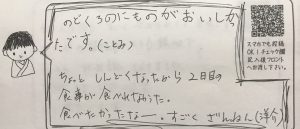 のどくろのにものがおいしかっ
たです。(ことみ)
ちょっと しんどくなったから 2日目の
食事が食べれなかった。
食べたかったなー。すごく ざんねん(洋介)
スマホでも投稿
OK!チェック欄
記入後フロント
へお渡し下さい。